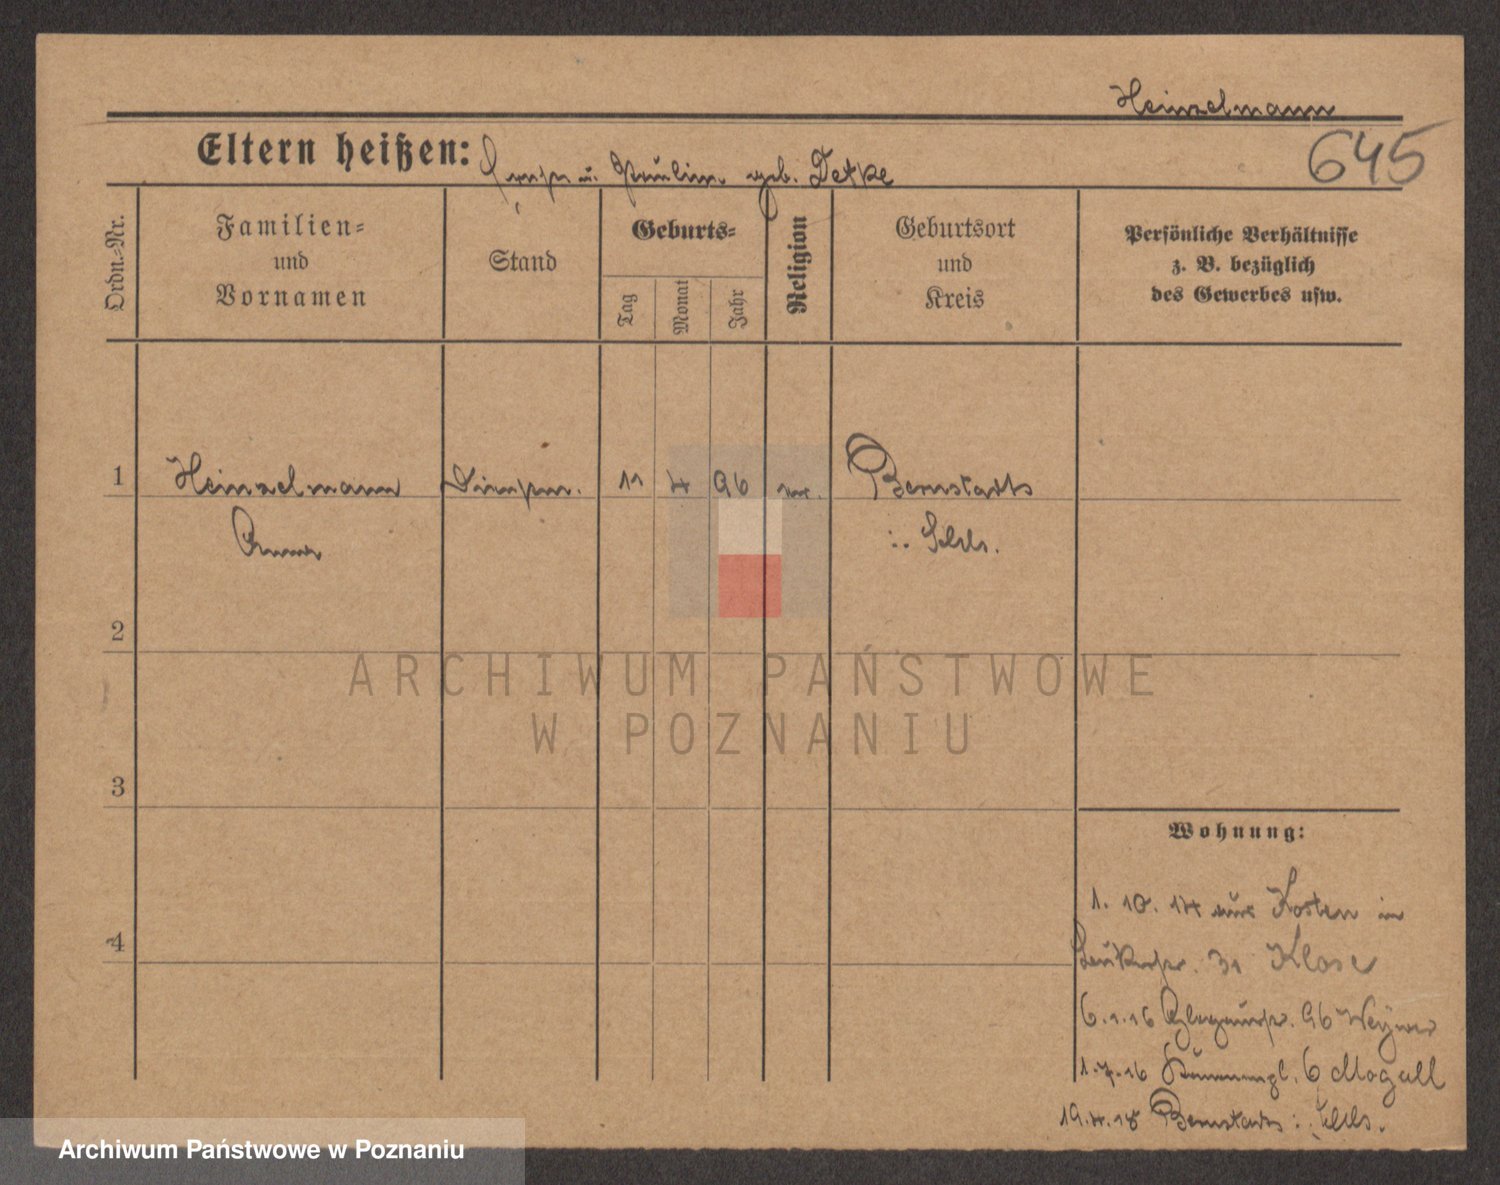 Heinzelmann
645
Eltern heißen: u. Paulin geb. Detke
Ordn.=Nr.
Familien=
und
Vornamen
Stand
Geburts=
Tag
Monat
Jahr
Religion
Geburtsort
und
Kreis
Persönliche Verhältnisse
z. B. bezüglich
des Gewerbes usw.
1 Heinzelmann 11 4 96 Bernstadt
Anna i. Schls.
2
3
4
Wohnung:
1. 10. 14 aus Kosten in
31 Klose
6.1.16 Glogauerstr. 96
1.7.16 6
19.4.18 Bernstadt i. Schls.
ARCHIWUM PAŃSTWOWE
W POZNANIU
Archiwum Państwowe w Poznaniu